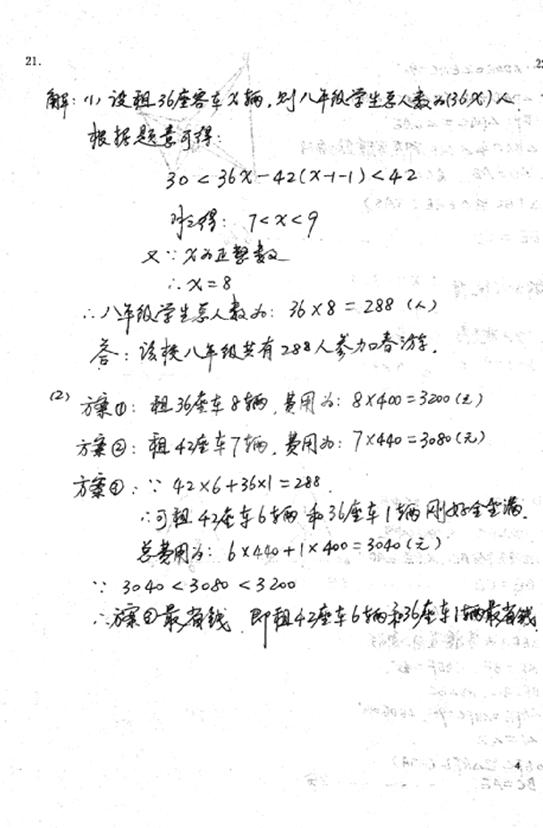 21.
解：(1) 设租36座客车x辆，则八年级学生总人数为(36x)人
根据题意可得：
30<36x-42(x-1-1)<42
解得：7<x<9
又∵x为正整数
∴x=8
∴八年级学生总人数为：36×8=288（人）
答：该校八年级共有288人参加春游．
(2) 方案①：租36座车8辆，费用为：8×400=3200(元)
方案②：租42座车7辆，费用为：7×440=3080(元)
方案③：∵ 42×6+36×1=288．
∴可租42座车6辆和36座车1辆刚好全坐满．
总费用为：6×440+1×400=3040(元)
∵ 3040<3080<3200
∴方案③最省钱．即租42座车6辆和36座车1辆最省钱．
4